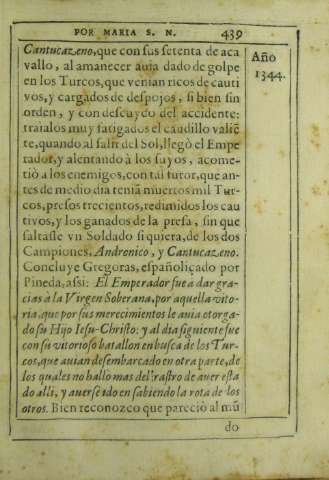 POR MARIA S. N. 439
Cantucazeno, que con sus setenta de aca
vallo, al amanecer auia dado de golpe
en los Turcos, que venian ricos de cauti
vos, y cargados de despojos, si bien sin
orden, y con descuydo del accidente:
traialos muy fatigados el caudillo valiẽ
te, quando al salir del Sol, llegò el Empe
rador, y alentando à los suyos, acome-
tiò a los enemigos, con tal tutor, que an-
tes de medio dia teniã muertos mil Tur-
cos, presos trecientos, redimidos los cau
tivos, y los ganados de la presa, sin que
faltasse vn Soldado siquiera, de los dos
Campiones, Andronico, y Cantucazeno.
Concluye Gregoras, españoliçado por
Pineda, assi: El Emperador fue a dar gra-
cias à la Virgen Soberana, por aquella vito-
ria, que por sus merecimientos le auia otorga-
do su Hijo Iesu-Christo: y al dia siguiente fue
con su vitorioso batallon en busca de los Tur-
cos, que auian desembarcado en otra parte, de
los quales no hallo mas del rastro de auer esta
do alli, y auerse ido en sabiendo la rota de los
otros. Bien reconozco que pareciò al mũ
do
Año
1344.